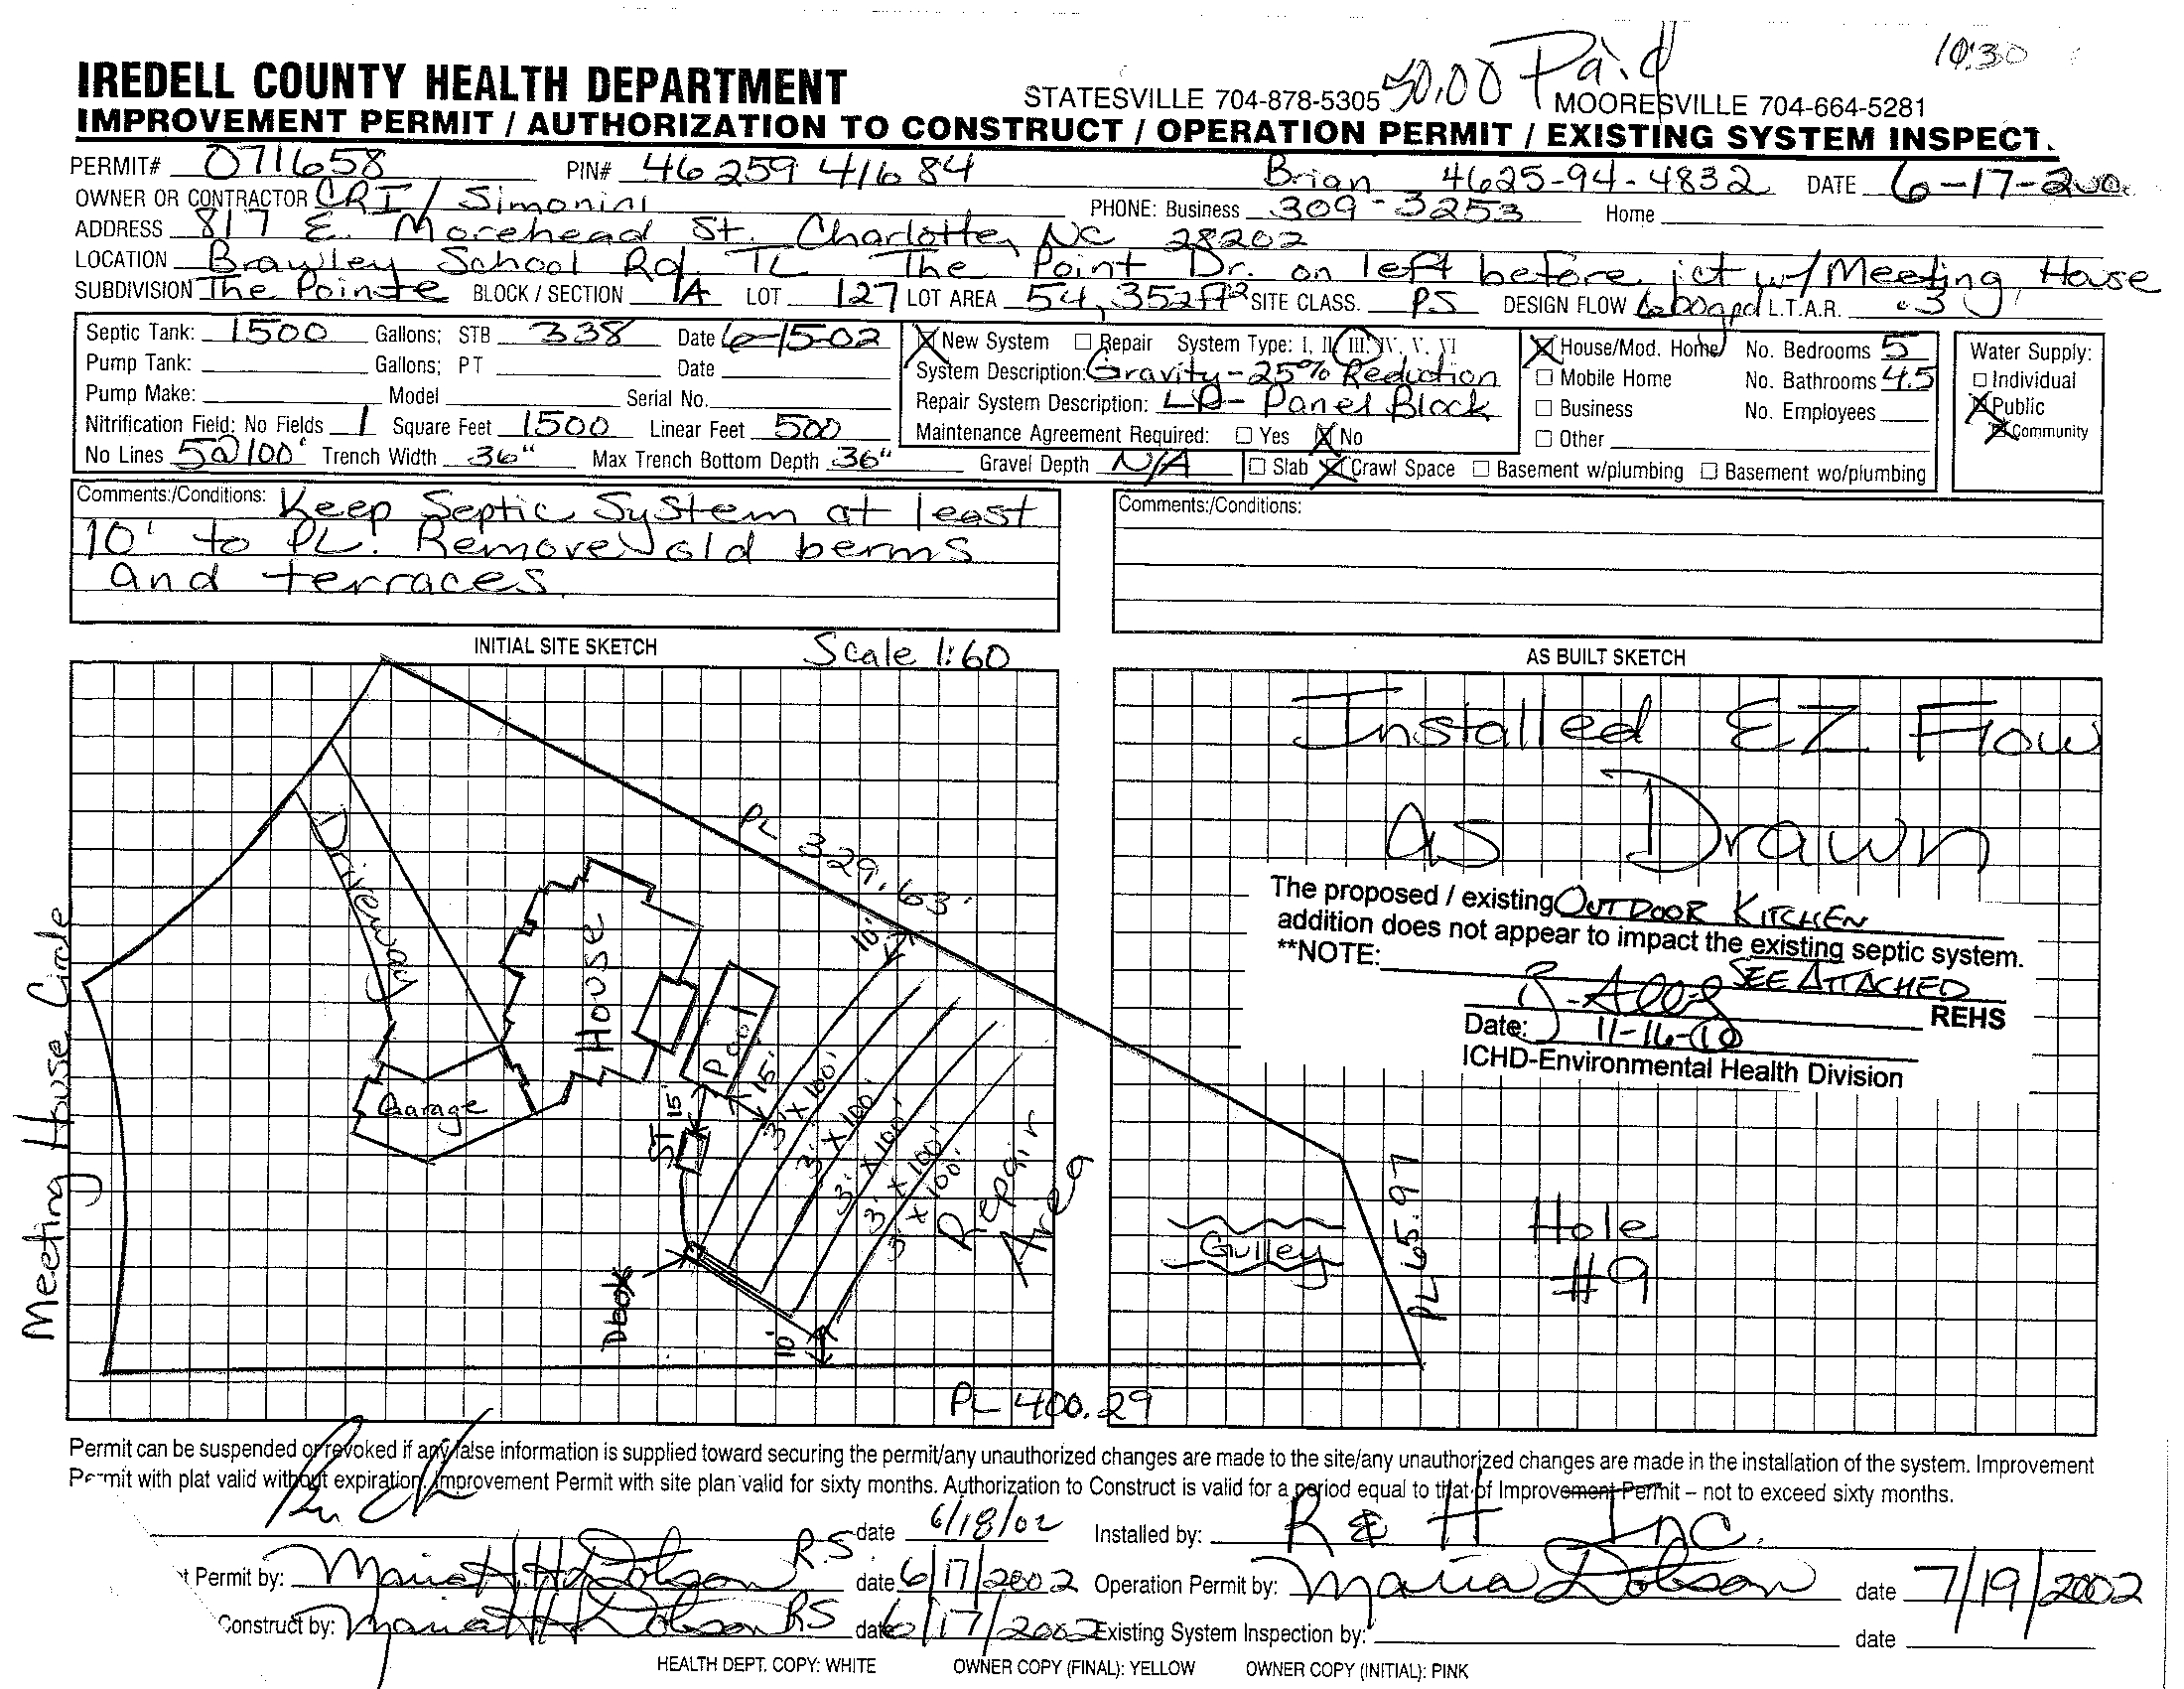 50.00 Paid
10:30
IREDELL COUNTY HEALTH DEPARTMENT
STATESVILLE 704-878-5305 MOORESVILLE 704-664-5281
IMPROVEMENT PERMIT / AUTHORIZATION TO CONSTRUCT / OPERATION PERMIT / EXISTING SYSTEM INSPECT.
PERMIT# 071658 PIN# 46 259 41684 Brian 4625-94-4832 DATE 6-17-200
OWNER OR CONTRACTOR CRI / Simonini PHONE: Business 309-3253 Home
ADDRESS 817 E. Morehead St. Charlotte, NC 28202
LOCATION Brawley School Rd. TL The Point Dr. on left before jct w/ Meeting House
SUBDIVISION The Pointe BLOCK / SECTION 1A LOT 127 LOT AREA 54,352ft² SITE CLASS. PS DESIGN FLOW 600gpd L.T.A.R. .3
Septic Tank: 1500 Gallons; STB 338 Date 6-15-02
Pump Tank: Gallons; PT Date
Pump Make: Model Serial No.
Nitrification Field: No Fields 1 Square Feet 1500 Linear Feet 500
No Lines 5@100' Trench Width 36" Max Trench Bottom Depth 36" Gravel Depth N/A
New System Repair System Type: I, II, III, IV, V, VI
System Description: Gravity-25% Reduction
Repair System Description: LP- Panel Block
Maintenance Agreement Required: Yes No
House/Mod. Home No. Bedrooms 5
Mobile Home No. Bathrooms 4.5
Business No. Employees
Other
Slab Crawl Space Basement w/plumbing Basement wo/plumbing
Water Supply:
Individual
Public
Community
Comments:/Conditions: Keep Septic System at least
10' to PL. Remove old berms
and terraces.
Comments:/Conditions:
INITIAL SITE SKETCH Scale 1:60
AS BUILT SKETCH
Installed EZ Flow
as Drawn
The proposed / existing OUTDOOR KITCHEN
addition does not appear to impact the existing septic system.
**NOTE: SEE ATTACHED
REHS
Date: 11-16-10
ICHD-Environmental Health Division
Meeting House Circle
Driveway
House
Garage
Pool
PL 329.63'
10'
15'
15'
ST
3' X 100'
3' X 100'
3' X 100'
3' X 100'
3' X 100'
Repair
Area
Dbox
10'
PL 400.29
Gulley
PL 65.97
Hole
#9
Permit can be suspended or revoked if any false information is supplied toward securing the permit/any unauthorized changes are made to the site/any unauthorized changes are made in the installation of the system. Improvement
Permit with plat valid without expiration. Improvement Permit with site plan valid for sixty months. Authorization to Construct is valid for a period equal to that of Improvement Permit – not to exceed sixty months.
date 6/18/02 Installed by: R & H Inc.
t Permit by: Maria H. Dobson R.S. date 6/17/2002 Operation Permit by: Maria Dobson date 7/19/2002
Construct by: Maria H Dobson RS date 6/17/2002 Existing System Inspection by: date
HEALTH DEPT. COPY: WHITE OWNER COPY (FINAL): YELLOW OWNER COPY (INITIAL): PINK